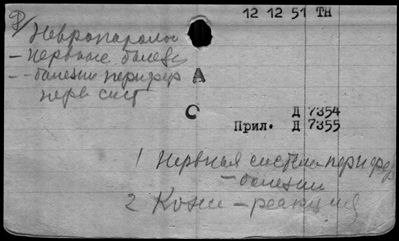 12 12 51 ТН
Невропатолог
– нервные болез
– болезни перифер
нерв сист
А
С
Д 7354
Прил. Д 7355
1 Нервная система перифер
– болезни
2 Кожи – реакция